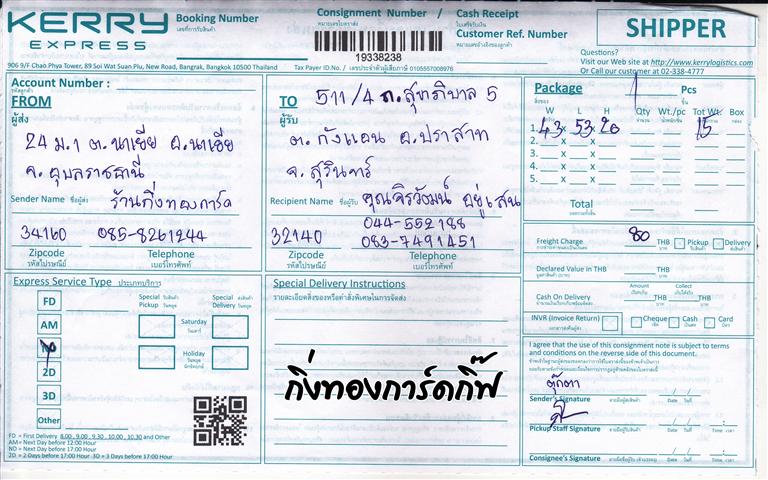 KERRY
EXPRESS
Booking Number
เลขที่การรับสินค้า
Consignment Number /
หมายเลขใบตราส่ง
19338238
Cash Receipt
ใบเสร็จรับเงิน
Customer Ref. Number
หมายเลขอ้างอิงของลูกค้า
SHIPPER
Questions?
Visit our Web site at http://www.kerrylogistics.com
Or Call our customer at 02-338-4777
906 9/F Chao Phya Tower, 89 Soi Wat Suan Plu, New Road, Bangrak, Bangkok 10500 Thailand
Tax Payer ID.No. / เลขประจำตัวผู้เสียภาษี 0105557008976
Account Number :
รหัสลูกค้า
FROM
ผู้ส่ง
24 ม.1 ต.นาเยีย อ.นาเยีย
จ. อุบลราชธานี
Sender Name ชื่อผู้ส่ง ร้านกิ่งทองการ์ด
34160 085-8261244
Zipcode Telephone
รหัสไปรษณีย์ เบอร์โทรศัพท์
TO
ผู้รับ
511/4 ถ.สุขาภิบาล 5
ต. กังแอน อ.ปราสาท
จ. สุรินทร์
Recipient Name ชื่อผู้รับ
044-552188
32140 083-7491451
Zipcode Telephone
รหัสไปรษณีย์ เบอร์โทรศัพท์
Package 1 Pcs
สิ่งของ ชิ้น
W L H Qty Wt./pc Tot Wt. Box
1. 43 x 53 x 20 15
2. x x
3. x x
4. x x
5. x x
Total
Freight Charge 80 THB Pickup Delivery
Declared Value in THB THB
Cash On Delivery THB
INVR (Invoice Return) Cheque Cash Card
Express Service Type ประเภทบริการ
FD
AM
2D
3D
Other
Special Pickup
Special Delivery
Saturday
วันเสาร์
Holiday
วันหยุด
นักขัตฤกษ์
FD = First Delivery 8.00 , 9.00 , 9.30 , 10.00 , 10.30 and Other
AM= Next Day before 12:00 Hour
ND = Next Day before 17:00 Hour
2D = 2 Days before 17:00 Hour 3D = 3 Days before 17:00 Hour
Special Delivery Instructions
รายละเอียดสิ่งของหรือคำสั่งพิเศษในการจัดส่ง
กิ่งทองการ์ดกิ๊ฟ
I agree that the use of this consignment note is subject to terms
and conditions on the reverse side of this document.
ตุ๊กตา
Sender's Signature ลายมือชื่อผู้ส่งสินค้า Date วันที่
Pickup Staff Signature Date วันที่ Time เวลา
Consignee's Signature Date วันที่ Time เวลา